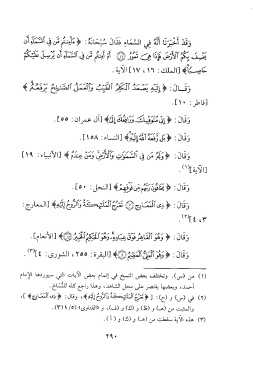 وَقَدْ أَخْبَرَنَا أَنَّهُ فِي السَّمَاءِ فَقَالَ سُبْحَانَهُ: ﴿ءَأَمِنتُم مَّن فِي السَّمَآءِ أَن
يَخْسِفَ بِكُمُ الْأَرْضَ فَإِذَا هِيَ تَمُورُ ۝ أَمْ أَمِنتُم مَّن فِي السَّمَآءِ أَن يُرْسِلَ عَلَيْكُمْ
حَاصِبًا﴾ [الملك: ١٦، ١٧] الآية.
وَقَالَ: ﴿إِلَيْهِ يَصْعَدُ الْكَلِمُ الطَّيِّبُ وَالْعَمَلُ الصَّالِحُ يَرْفَعُهُ﴾
[فاطر: ١٠].
وَقَالَ: ﴿إِنِّي مُتَوَفِّيكَ وَرَافِعُكَ إِلَيَّ﴾ [آل عمران: ٥٥].
وَقَالَ: ﴿بَل رَّفَعَهُ اللَّهُ إِلَيْهِ﴾ [النساء: ١٥٨].
وَقَالَ: ﴿وَلَهُ مَن فِي السَّمَاوَاتِ وَالْأَرْضِ وَمَنْ عِندَهُ﴾ [الأنبياء: ١٩]
[الآية](١).
وَقَالَ: ﴿يَخَافُونَ رَبَّهُم مِّن فَوْقِهِمْ﴾ [النحل: ٥٠].
وَقَالَ: ﴿ذِي الْمَعَارِجِ ۝ تَعْرُجُ الْمَلَائِكَةُ وَالرُّوحُ إِلَيْهِ﴾ [المعارج:
٣، ٤](٢).
وَقَالَ: ﴿وَهُوَ الْقَاهِرُ فَوْقَ عِبَادِهِ وَهُوَ الْحَكِيمُ الْخَبِيرُ﴾ [الأنعام].
وَقَالَ: ﴿وَهُوَ الْعَلِيُّ الْعَظِيمُ﴾ [البقرة: ٢٥٥، الشورى: ٤](٣).
(١) من (س). وتختلف بعض النسخ في إتمام بعض الآيات التي سيوردها الإمام
أحمد، وبعضها يقتصر على محل الشاهد، وهذا راجع كله للنُّسَّاخ.
(٢) في (س) و(ج): [﴿تَعْرُجُ الْمَلَائِكَةُ وَالرُّوحُ إِلَيْهِ﴾، وقال: ﴿ذِي الْمَعَارِجِ﴾]،
والمثبت من (هـ) و(ظ) و(ك) و(ف)، و«الفتاوى» (٥/ ٣١١).
(٣) هذه الآية سقطت من (هـ) و(ك) و(أ).
٢٩٠